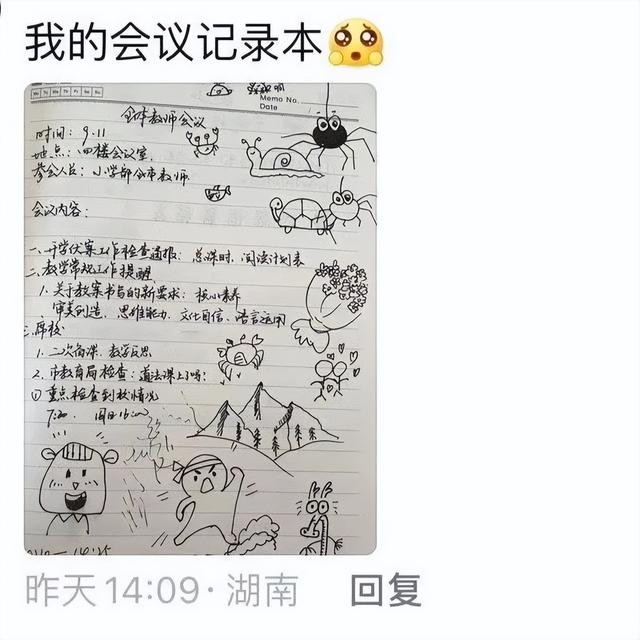 我的会议记录本🥺
Mo Tu We Th Fr Sa Su
Memo No.
Date
全体教师会议
时间：9.11
地点：四楼会议室
参会人员：小学部全体教师
会议内容：
一、开学 工作检查通报：总课时、阅读计划表
二、教学常规工作提醒
1、关于教案书写的新要求：核心素养
审美创造、思维能力、文化自信、语言运用
三、
1、二次备课、教学反思
2、市教育局检查：道法课上了吗？
①重点检查到校情况
7:20
昨天14:09·湖南 回复